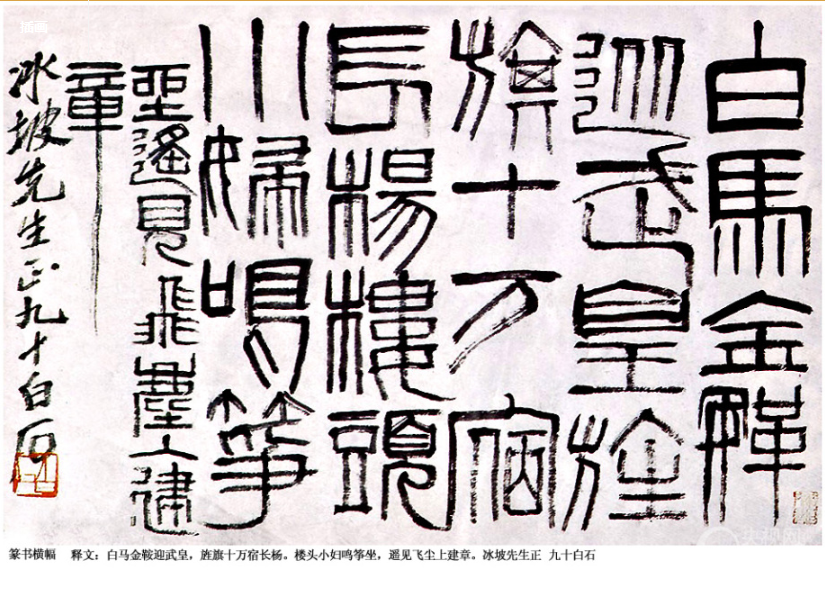 白馬金鞍
迎武皇旌
旗十万宿
長楊樓頭
小婦鳴箏
坐遙見飛塵上建
章
冰坡先生正九十白石
篆书横幅 释文：白马金鞍迎武皇，旌旗十万宿长杨。楼头小妇鸣筝坐，遥见飞尘上建章。冰坡先生正 九十白石